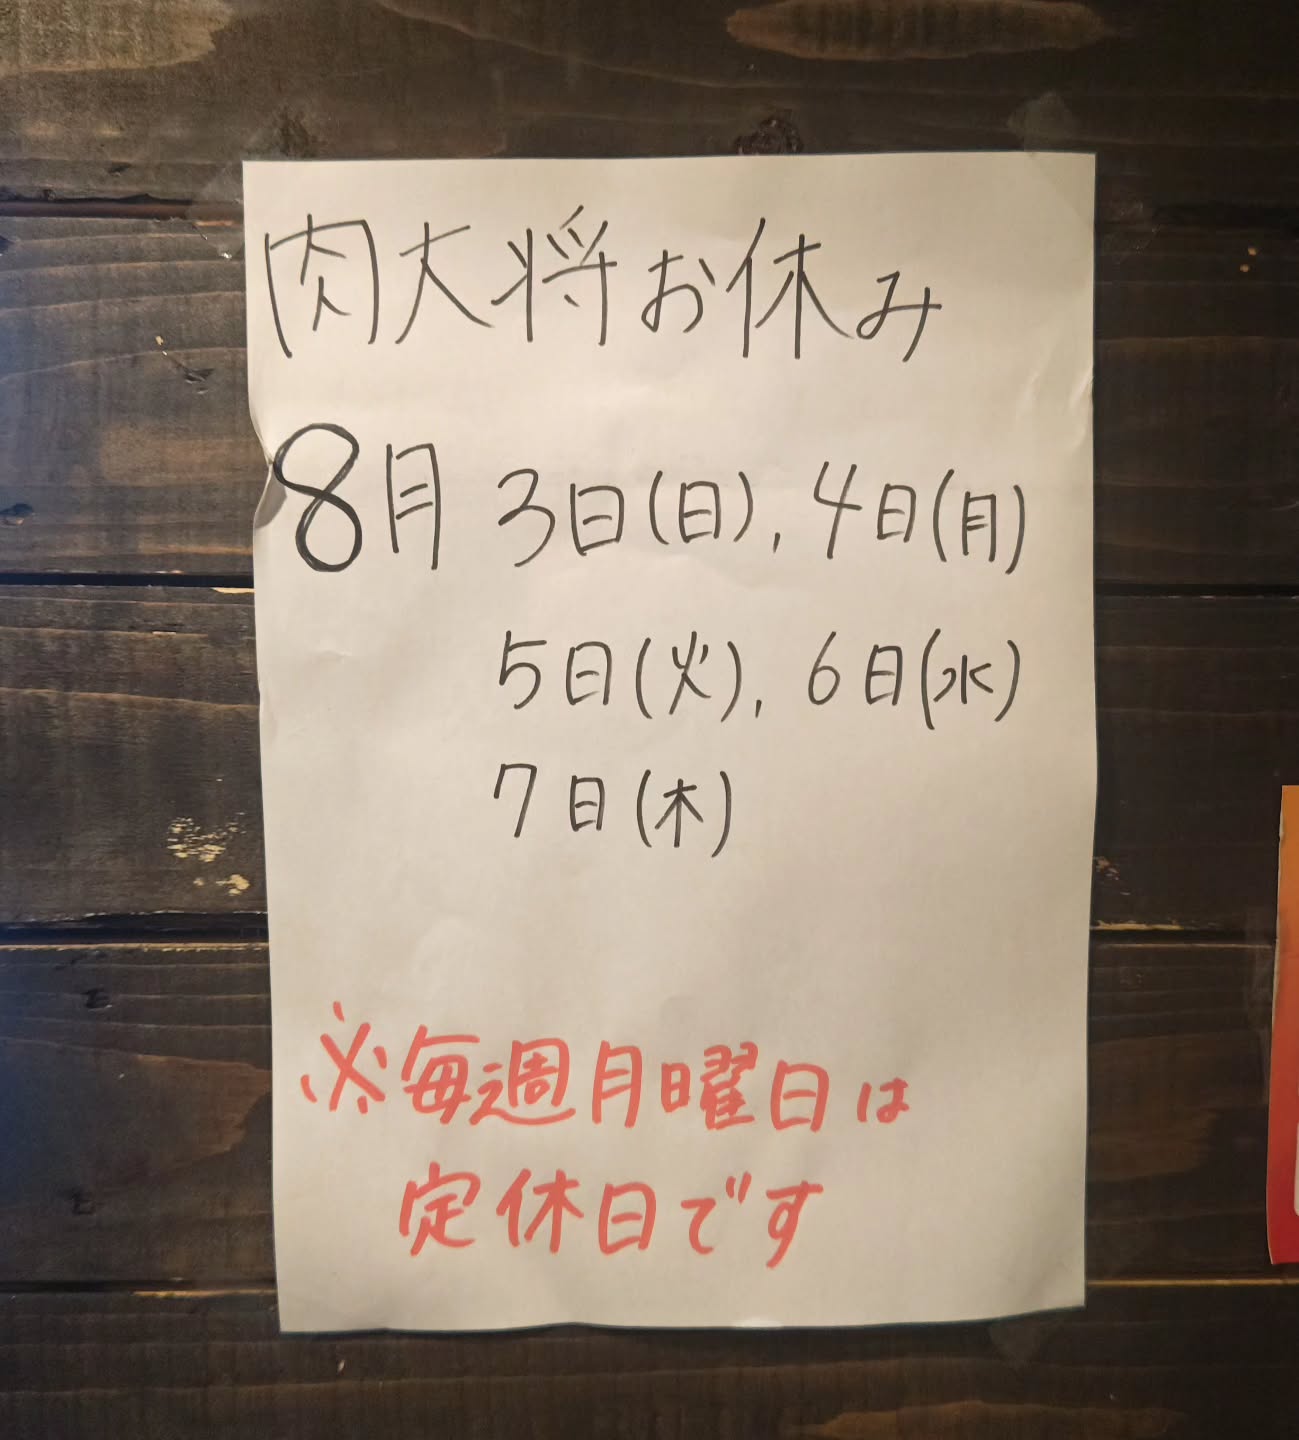 肉大将お休み
8月 3日(日), 4日(月)
5日(火), 6日(水)
7日(木)
※毎週月曜日は
定休日です